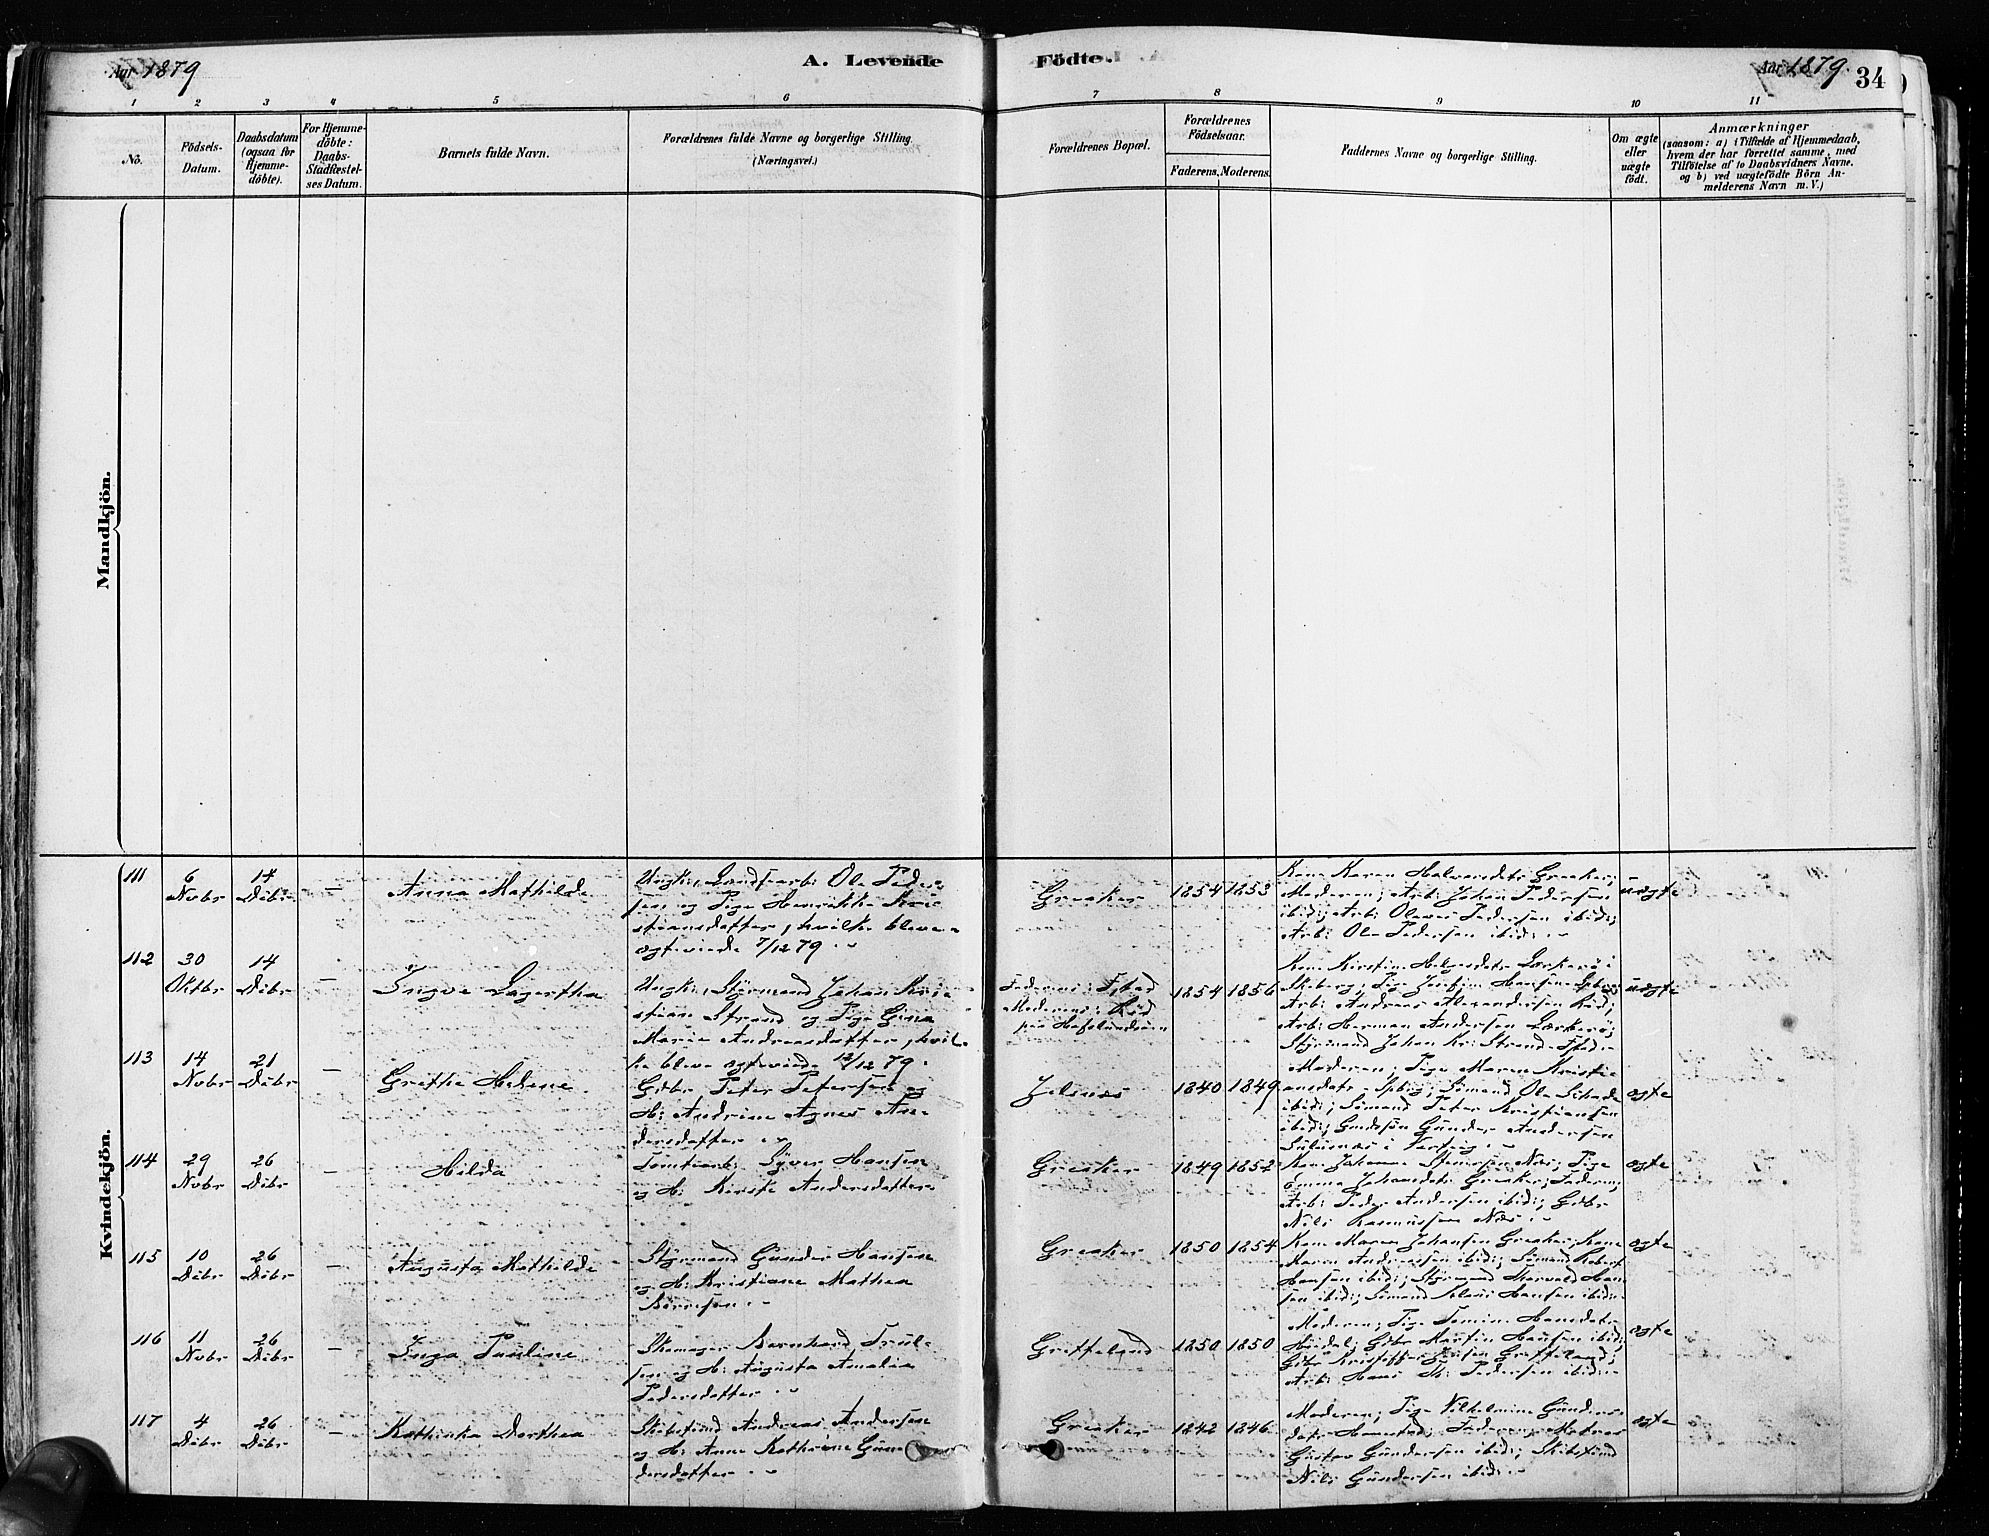 Aar 1879
A. Levende
Födte.
Aar 1879.
34
1 2 3 4 5 6 7 8 9 10 11
No.
Födsels-
Datum.
Daabsdatum
(ogsaa for
Hjemme-
döbte).
For Hjemme-
döbte:
Daabs-
Stadfæstel-
ses Datum.
Barnets fulde Navn.
Forældrenes fulde Navne og borgerlige Stilling.
(Næringsvei.)
Forældrenes Bopæl.
Forældrenes
Födselsaar.
Faderens. Moderens.
Faddernes Navne og borgerlige Stilling.
Om ægte
eller
uægte
födt.
Anmærkninger
(saasom: a) i Tilfælde af Hjemmedaab,
hvem der har forrettet samme, med
Tilföielse af to Daabsvidners Navne.
og b) ved uægtefödte Börn An-
melderens Navn m. V.)
Mandkjön.
Kvindekjön.
111 6 Novbr 14 Debr — Anna Mathilde
Ungk., Landsarb: Ole Peder-
sen og Pige Henrikke Kri-
stiansdatter, hvilke bleve
ægteviede 7/12 79.
Greaker 1854 1853
Kone Karen Halvorsdtr Greaker;
Moderen; Arb: Johan Pedersen
ibid; Arb: Oluves Pedersen ibid;
Arb: Ole Pedersen ibid:
uægte
112 30 Oktbr 14 Debr — Ingva Lagertha
Ungk., Styrmand Johan Kri-
stian Strand og Pige Gina
Marie Andreasdatter, hvil-
ke bleve ægteviede 12/12 79.
Faderens:
Moderens: Röd
paa Hafslundsöen
1854 1856
Kone Kirstine Helgesdtr Lærkerö i
Skeberg; Pige Hansen
Arb: Andreas Alexandersen Röd;
Arb: Herman Andersen Lærkerö;
Styrmand Johan Kr: Strand
uægte
113 14 Novbr 21 Debr — Grethe Helene
Gbr. Peter Petersen og
H: Andrine Agnes An-
dersdatter
Jelsnes 1840 1849
Moderen; Pige Maren Kristi-
ansdatr Spbrg; Sömand Ole
ibid; Sömand Peter Kristiansen
ibid; Gunder Andersen
i
ægte
114 29 Novbr 26 Debr — Hilda
Tomtearb: Syver Hansen
og H: Kirste Andersdatter
Greaker 1849 1852
Kone Johanne Næs; Pige
Emma Johansdtr Greaker; Faderen;
Arb: Peder Andersen ibid; Gbr
Nils Rasmussen Næs
ægte
115 10 Debr 26 Debr — Augusta Mathilde
Styrmand Gunder Hansen
og H: Kristiane Mathea
Börresen
Greaker 1850 1854
Kone Maren Johansen Greaker; Kone
Maren Andreassen ibid; Sömand Robert
Hansen ibid; Styrmand Han-
sen ibid; Sömand Hansen ibid
ægte
116 11 Novbr 26 Debr — Inga Pauline
Skomager Bernhard Trul-
sen og H: Augusta Amalia
Pedersdatter
Greffsland 1850 1850
Moderen; Pige Hansdatr
Gbr Martin Hansen ibid;
Gbr Kristoffer Greffsland;
Arb: Hans Pedersen ibid
ægte
117 4 Debr 26 Debr — Kathinka Dorthea
Andreas Andersen
og H: Anne Kathrine Gun-
dersdatter
Greaker 1842 1846
Moderen; Pige Vilhelmine Gunders-
datr; Faderen; Matros
Gustav Gundersen ibid;
Nils Gundersen ibid
ægte